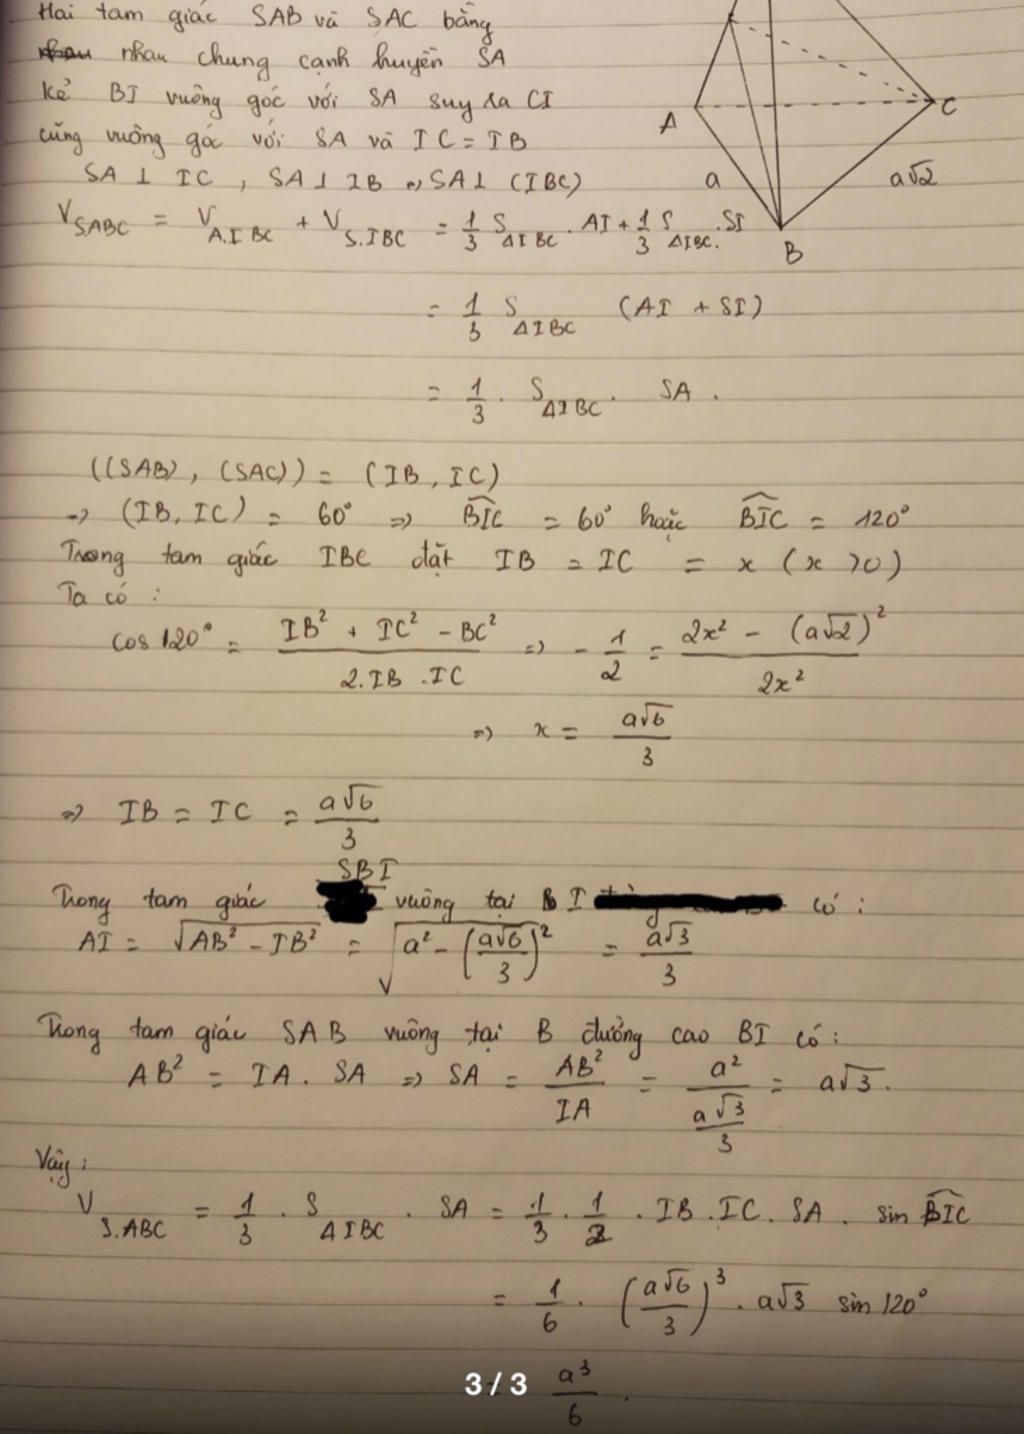 Hai tam giác SAB và SAC bằng
nhau chung cạnh huyền SA
kẻ BI vuông góc với SA suy ra CI
cũng vuông góc với SA và IC = IB
SA ⊥ IC , SA ⊥ IB => SA ⊥ (IBC)
A
C
a
a√2
B
V_SABC = V_A.IBC + V_S.IBC = 1/3 S_ΔIBC . AI + 1/3 S_ΔIBC . SI
= 1/3 S_ΔIBC (AI + SI)
= 1/3 . S_ΔIBC . SA .
((SAB), (SAC)) = (IB, IC)
=> (IB, IC) = 60° => \widehat{BIC} = 60° hoặc \widehat{BIC} = 120°
Trong tam giác IBC đặt IB = IC = x (x > 0)
Ta có :
cos 120° = (IB² + IC² - BC²) / (2.IB.IC) => - 1/2 = (2x² - (a√2)²) / (2x²)
=> x = a√6/3
=> IB = IC = a√6/3
SBI
Trong tam giác vuông tại I có :
AI = √(AB² - IB²) = √(a² - (a√6/3)²) = a√3/3
Trong tam giác SAB vuông tại B đường cao BI có :
AB² = IA . SA => SA = AB²/IA = a²/(a√3/3) = a√3 .
Vậy :
V_S.ABC = 1/3 . S_ΔIBC . SA = 1/3 . 1/2 . IB . IC . SA . sin \widehat{BIC}
= 1/6 . (a√6/3)³ . a√3 sin 120°
3 / 3
a³/6 .